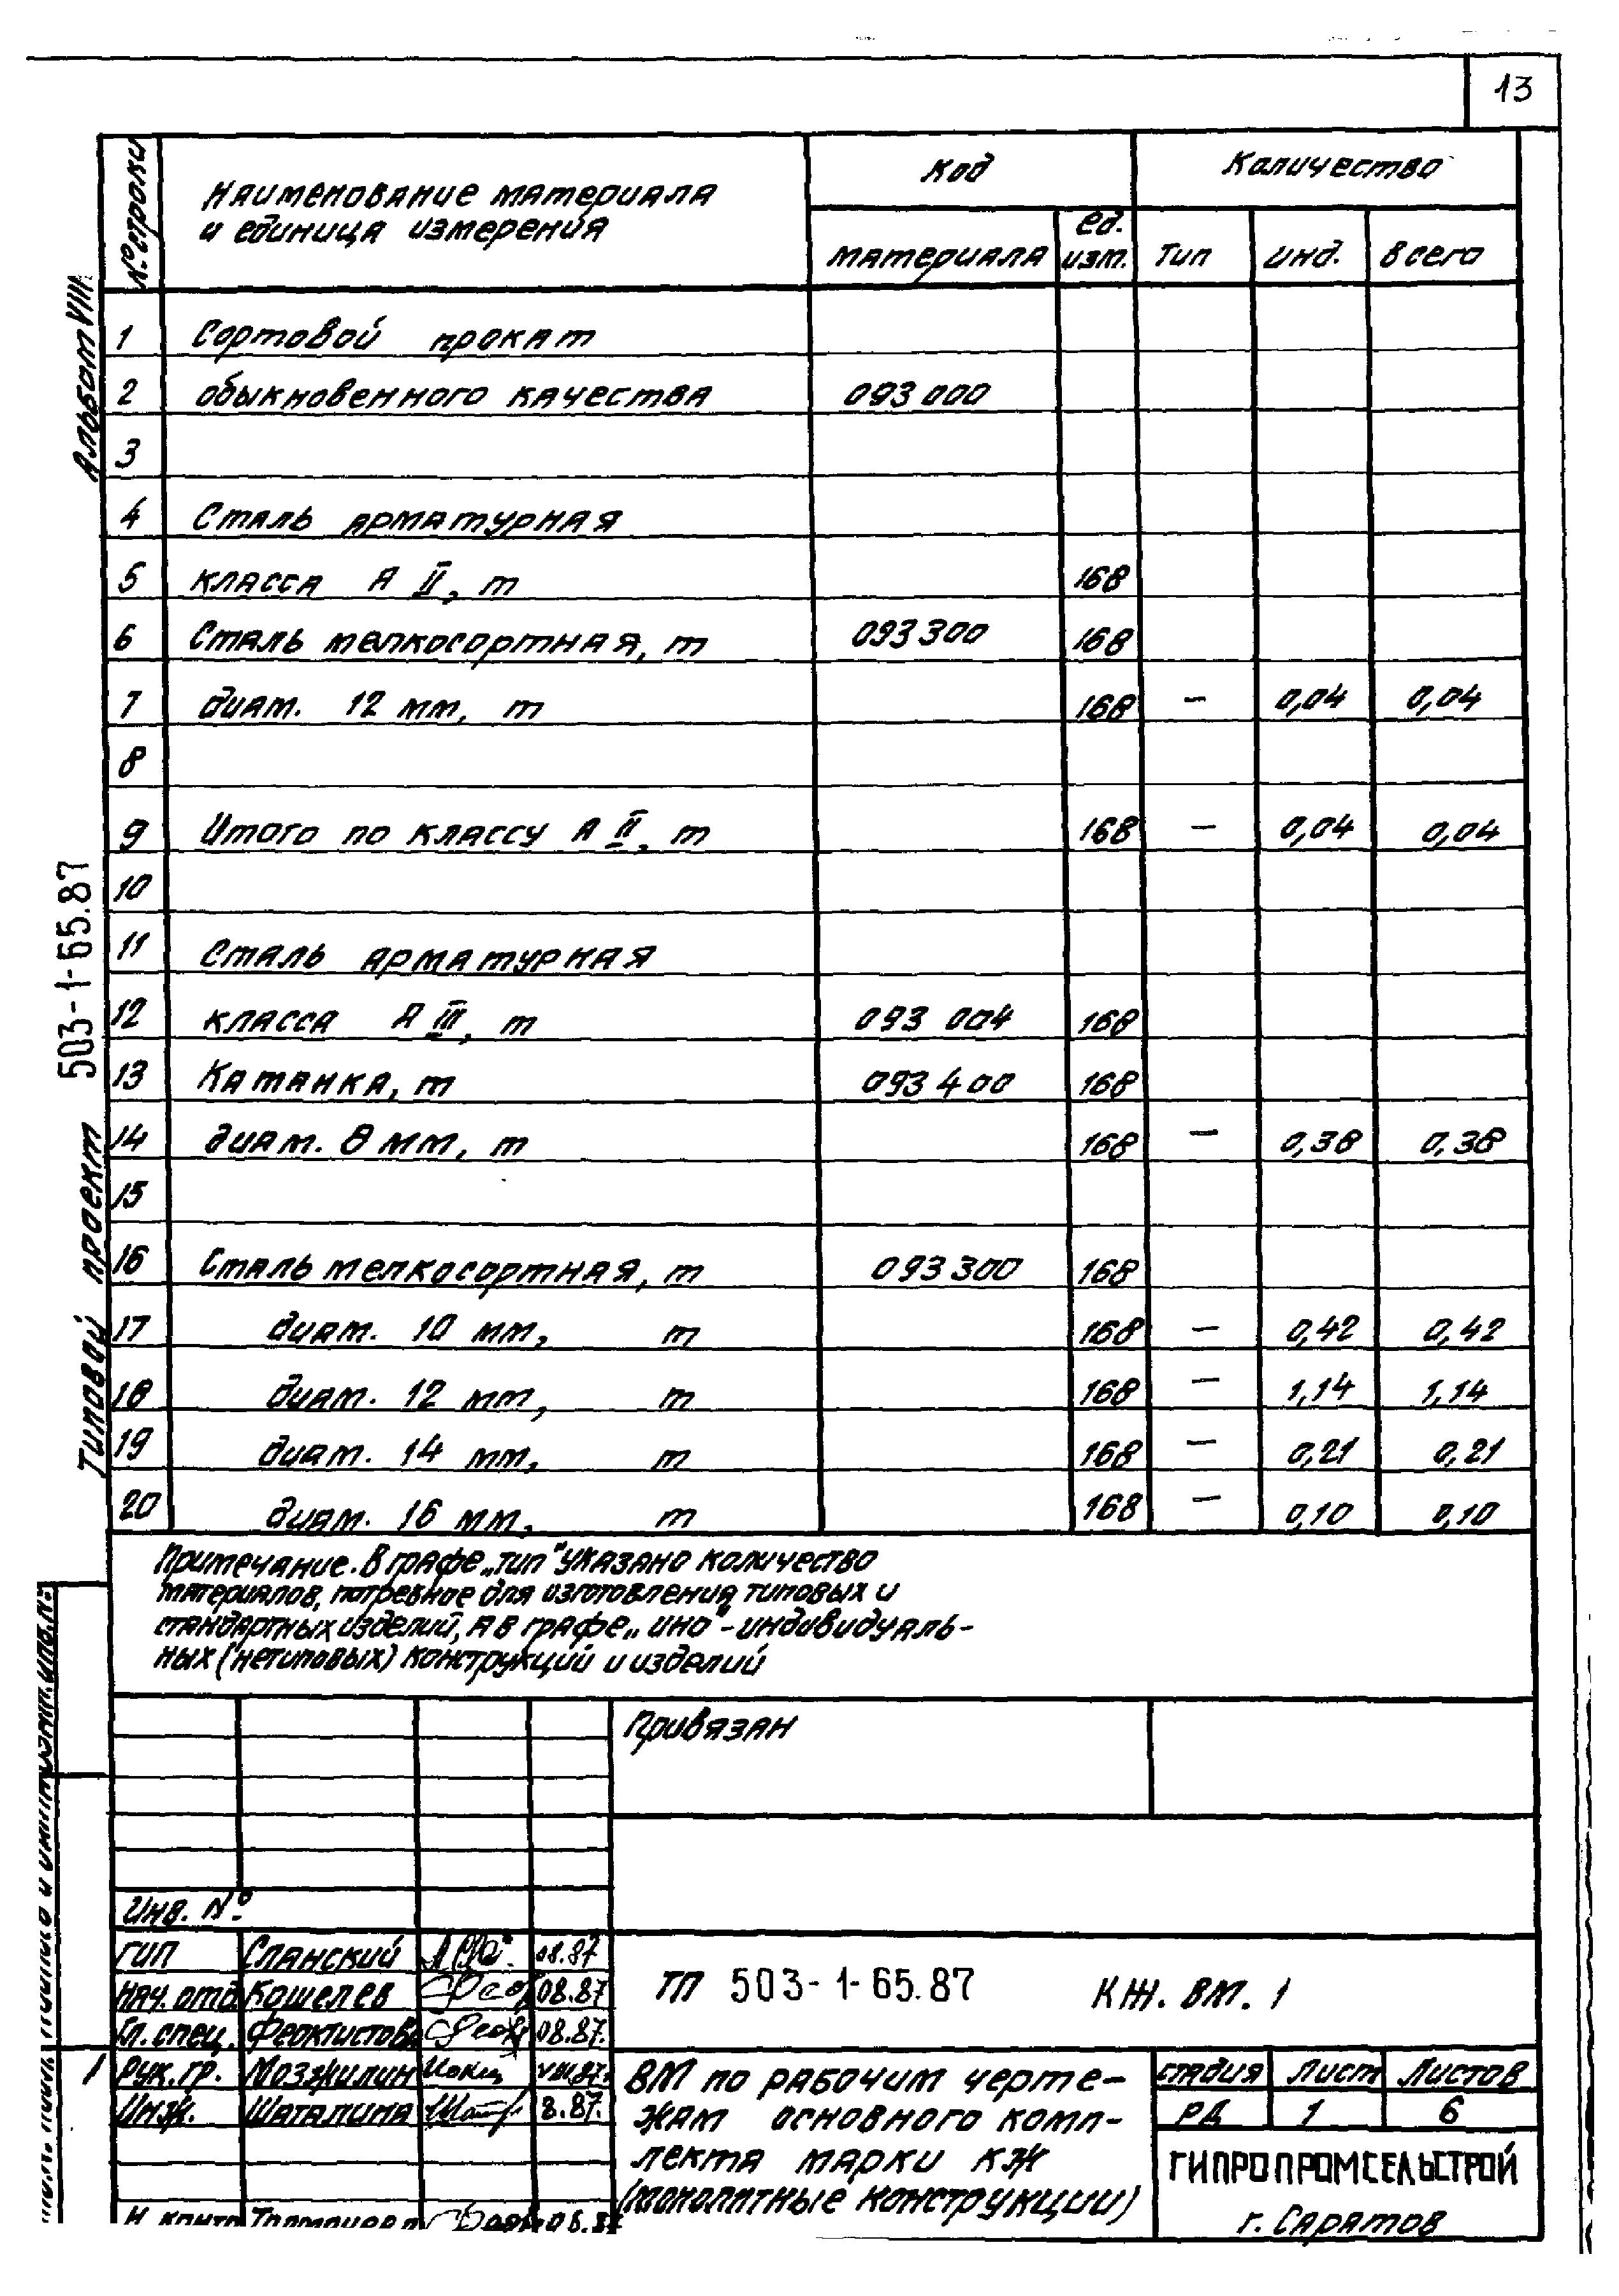 13
Альбом VIII
503-1-65.87
Типовой проект
№ строки
Наименование материала
и единица измерения
Код
Количество
материала
ед.
изм.
Тип
инд.
всего
1 Сортовой прокат
2 обыкновенного качества 093 000
3
4 Сталь арматурная
5 класса А II, т 168
6 Сталь мелкосортная, т 093300 168
7 диам. 12 мм, т 168 — 0,04 0,04
8
9 Итого по классу А II, т 168 — 0,04 0,04
10
11 Сталь арматурная
12 класса А III, т 093 004 168
13 Катанка, т 093 400 168
14 диам. 8 мм, т 168 — 0,38 0,38
15
16 Сталь мелкосортная, т 093 300 168
17 диам. 10 мм, т 168 — 0,42 0,42
18 диам. 12 мм, т 168 — 1,14 1,14
19 диам. 14 мм, т 168 — 0,21 0,21
20 диам. 16 мм, т 168 — 0,10 0,10
Примечание. В графе „тип" указано количество
материалов, потребное для изготовления типовых и
стандартных изделий, а в графе „инд"-индивидуаль-
ных (нетиповых) конструкций и изделий
Привязан
Инв. №
ГИП Сланский 08.87
Нач. отд. Кошелев 08.87
Гл. спец. Феоктистова 08.87.
Рук. гр. Мозжилин VIII.87.
Инж. Шаталина 8.87.
Н. контр 08.87
ТП 503-1-65.87 КЖ. ВМ. 1
ВМ по рабочим черте-
жам основного комп-
лекта марки КЖ
(монолитные конструкции)
стадия Лист Листов
РД 1 6
ГИПРОПРОМСЕЛЬСТРОЙ
г. Саратов